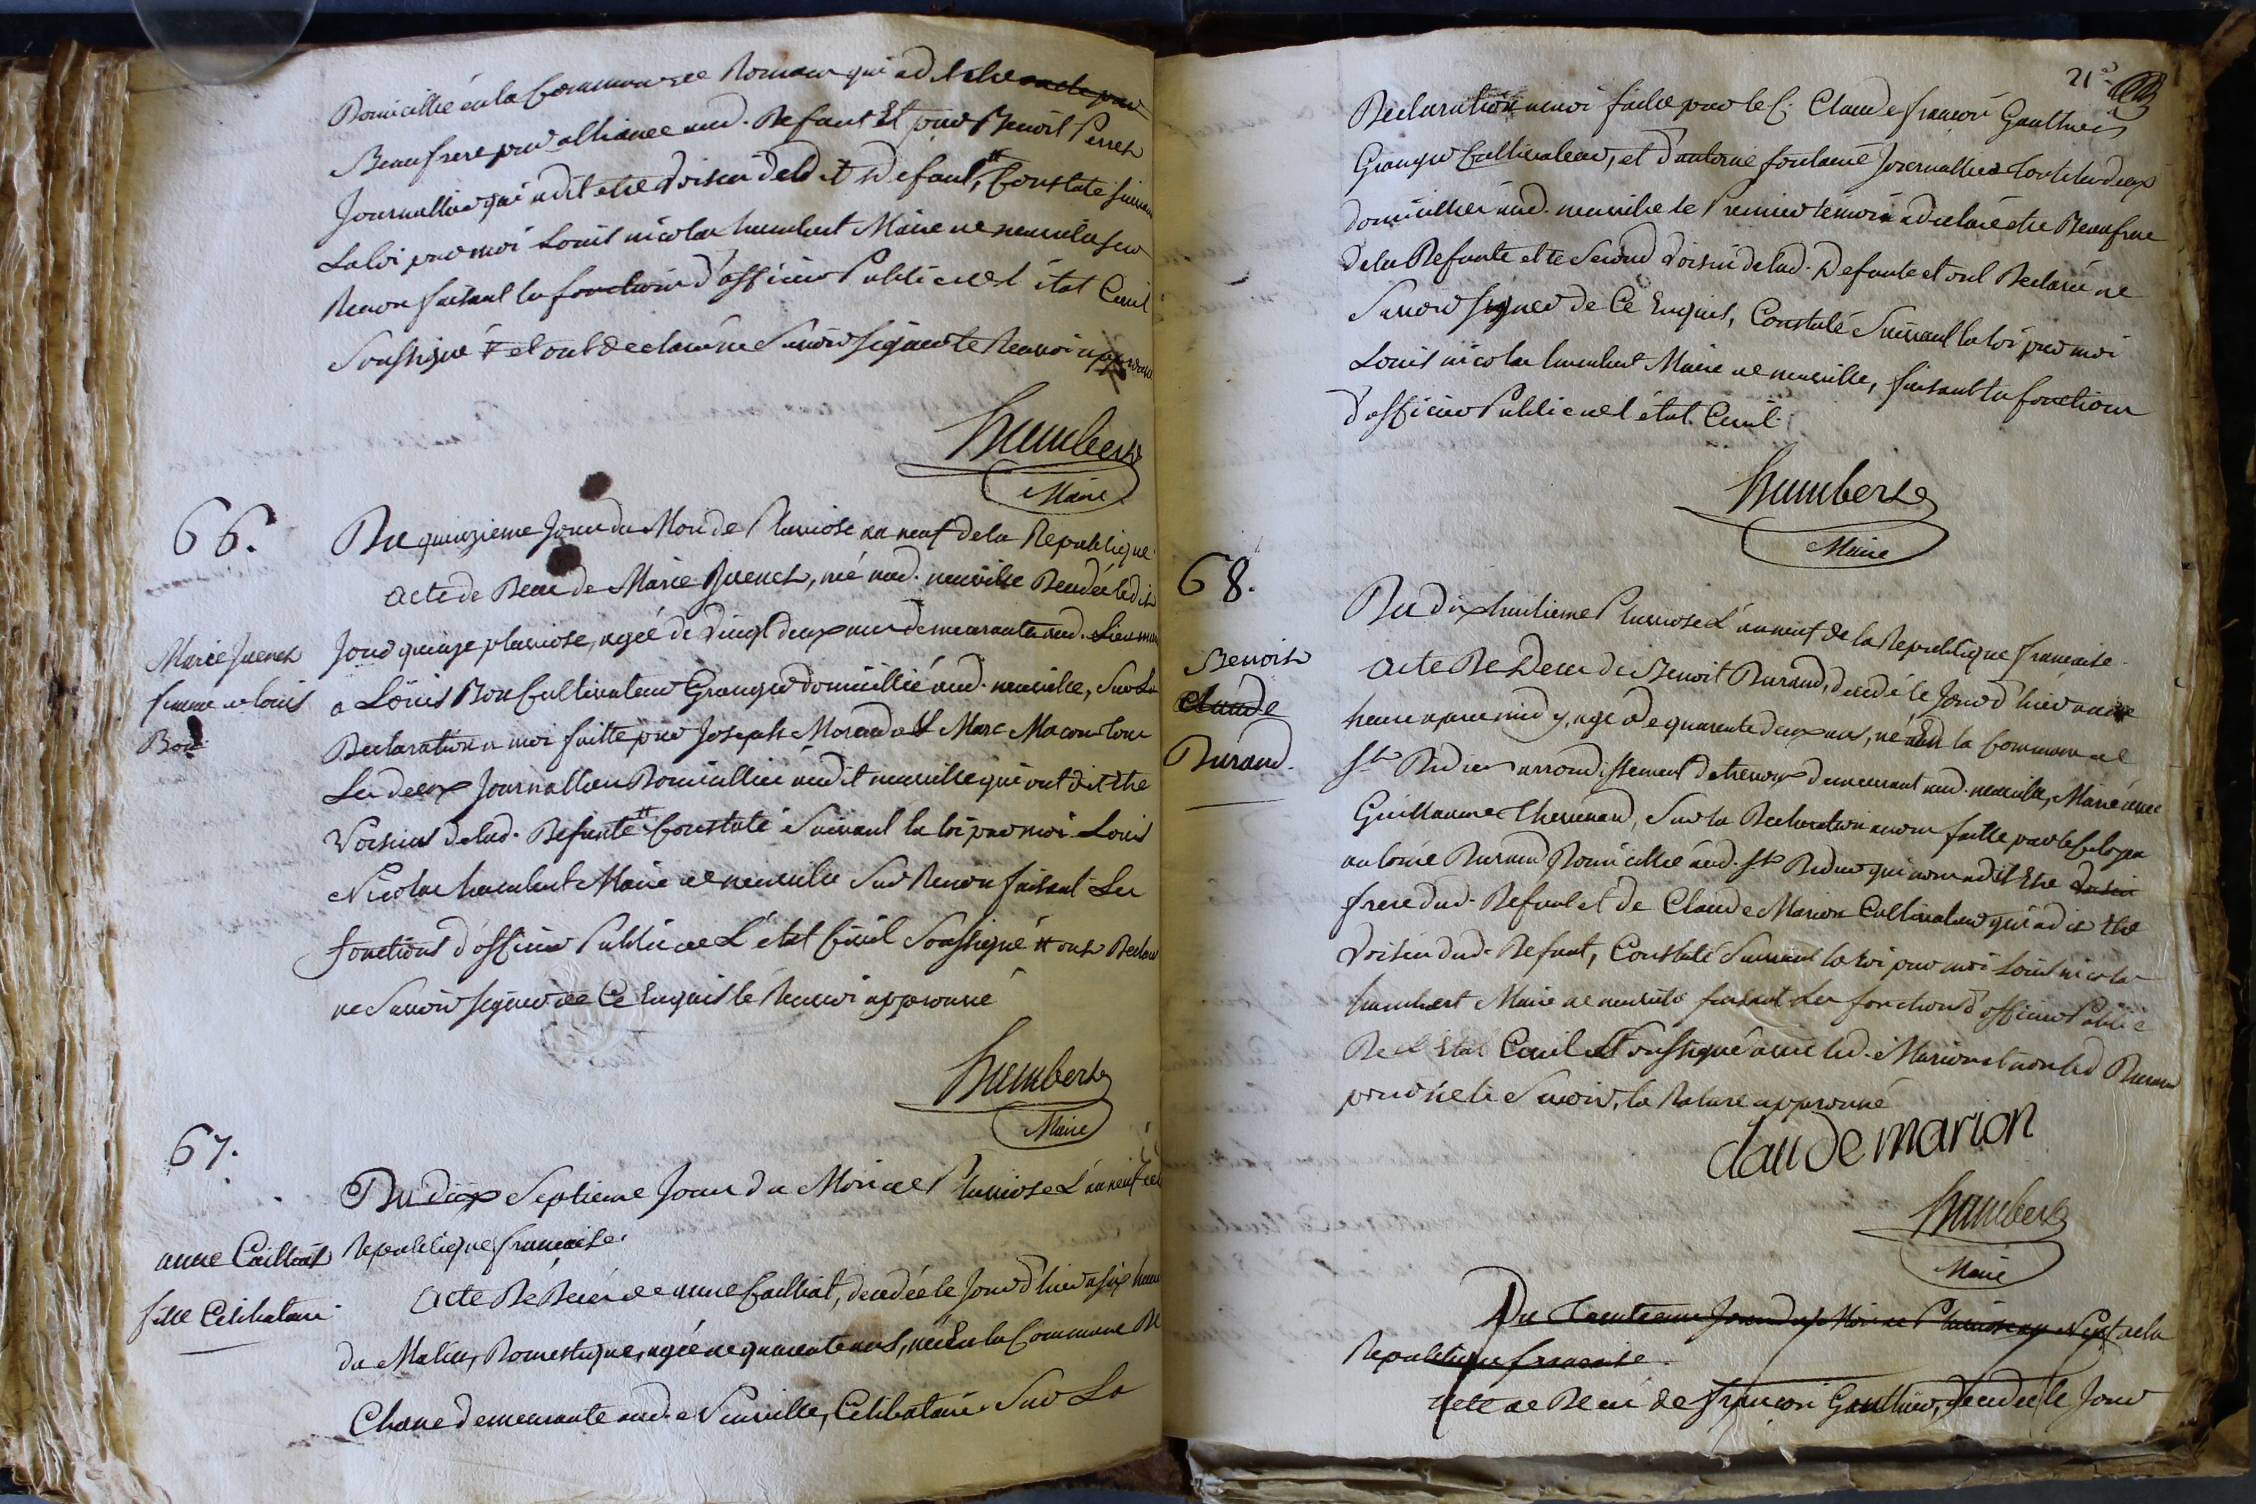 Domicillié en la Commune de Romans qui a dit être oncle par
Beaufrere par alliance aud. Defunt Et par Benoit Perret
Journallier qui a dit etre Voisin dud it Defunt, # Constaté suivant
La loi par moi Louis nicolas humbert Maire de neuville sur
Renon faisant les fonctions d'officier Public de l'état Civil
Soussigné # et ont declaré ne Savoir signer le Renvoi approuvé
humbert
Maire
66.
Du quinzieme Jour du Mois de Pluviose an neuf de la Republique
Acte de Deces de Marie Juenet, né aud. neuville Decedée ledit
Marie Juenet
femme de louis
Bon
Jour quinze pluviose, agée de Vingt deux ans demeurante aud. Lieu
a Louis Bon Cultivateur Granger domicillié aud. neuville, Sur La
Declaration a moi faitte par Joseph Morand et Marc Macon tous
Les deux Journallier Domicilliés audit neuville qui ont dit etre
Voisins de lad. Defunte # Constaté Suivant la loi par moi Louis
Nicolas humbert Maire de neuville Sur Renon faisant Les
fonctions d'officier Public de L'état Civil Soussigné # ont Declaré
ne Savoir signer de Ce Enquis le Renvoi approuvé
humbert
Maire
67.
Du dix Septieme Jour du Mois de Pluviose L'an neuf de la
Republique francaise.
anne Cailliat
fille Celibataire
Acte De Décés de anne Cailliat, decedée le Jour d'hier a six heures
du Matin, Domestique, agée de quarante ans, née En la Commune De
Chane demeurante aud. Neuville, Celibataire Sur La
21
Declaration a moi faitte par le C. Claude francois Gauthier
Granger Cultivateur, et d'antoine fontaine Journallier tout les deux
domicilliés aud. neuville le Premier temoin a declaré etre Beaufrere
de la Defunte et le Second Voisin de lad. Defunte et ont Declaré ne
Savoir signer de Ce Enquis, Constaté Suivant la loi par moi
Louis nicolas humbert Maire de neuville, faisant les fonctions
d'officier Public de l'état Civil.
humbert
Maire
68.
Benoit
Claude
Durand.
Du dix huitieme Pluviose L'an neuf de la Republique francaise.
Acte De Deces de Benoit Durand, decedé le Jour d'hier a une
heure apres midy, agé de quarente deux ans, né En la Commune de
St. Didier arrondissement de trevoux demeurant aud. neuville, Marié avec
Guillaume Thevenard, Sur la Declaration a moi faitte par le
antoine Durand Domicillié aud. St Didier qui nous a dit Etre Voisin
frere dud. Defunt et de Claude Marion Cultivateur qui a dit etre
Voisin dud. Defunt, Constaté Suivant la loi par moi Louis nicolas
humbert Maire de neuville faisant Les fonctions d'officier Public
De l'Etat Civil et Soussigné avec led. Marion et non led Durand
pour ne le Savoir, la Rature approuvé
claude marion
humbert
Maire
Du Trentieme Jour du Mois de Pluviose an Neuf de la
Republique francaise.
Acte de Decé de francois Gauthier, decedé le Jour